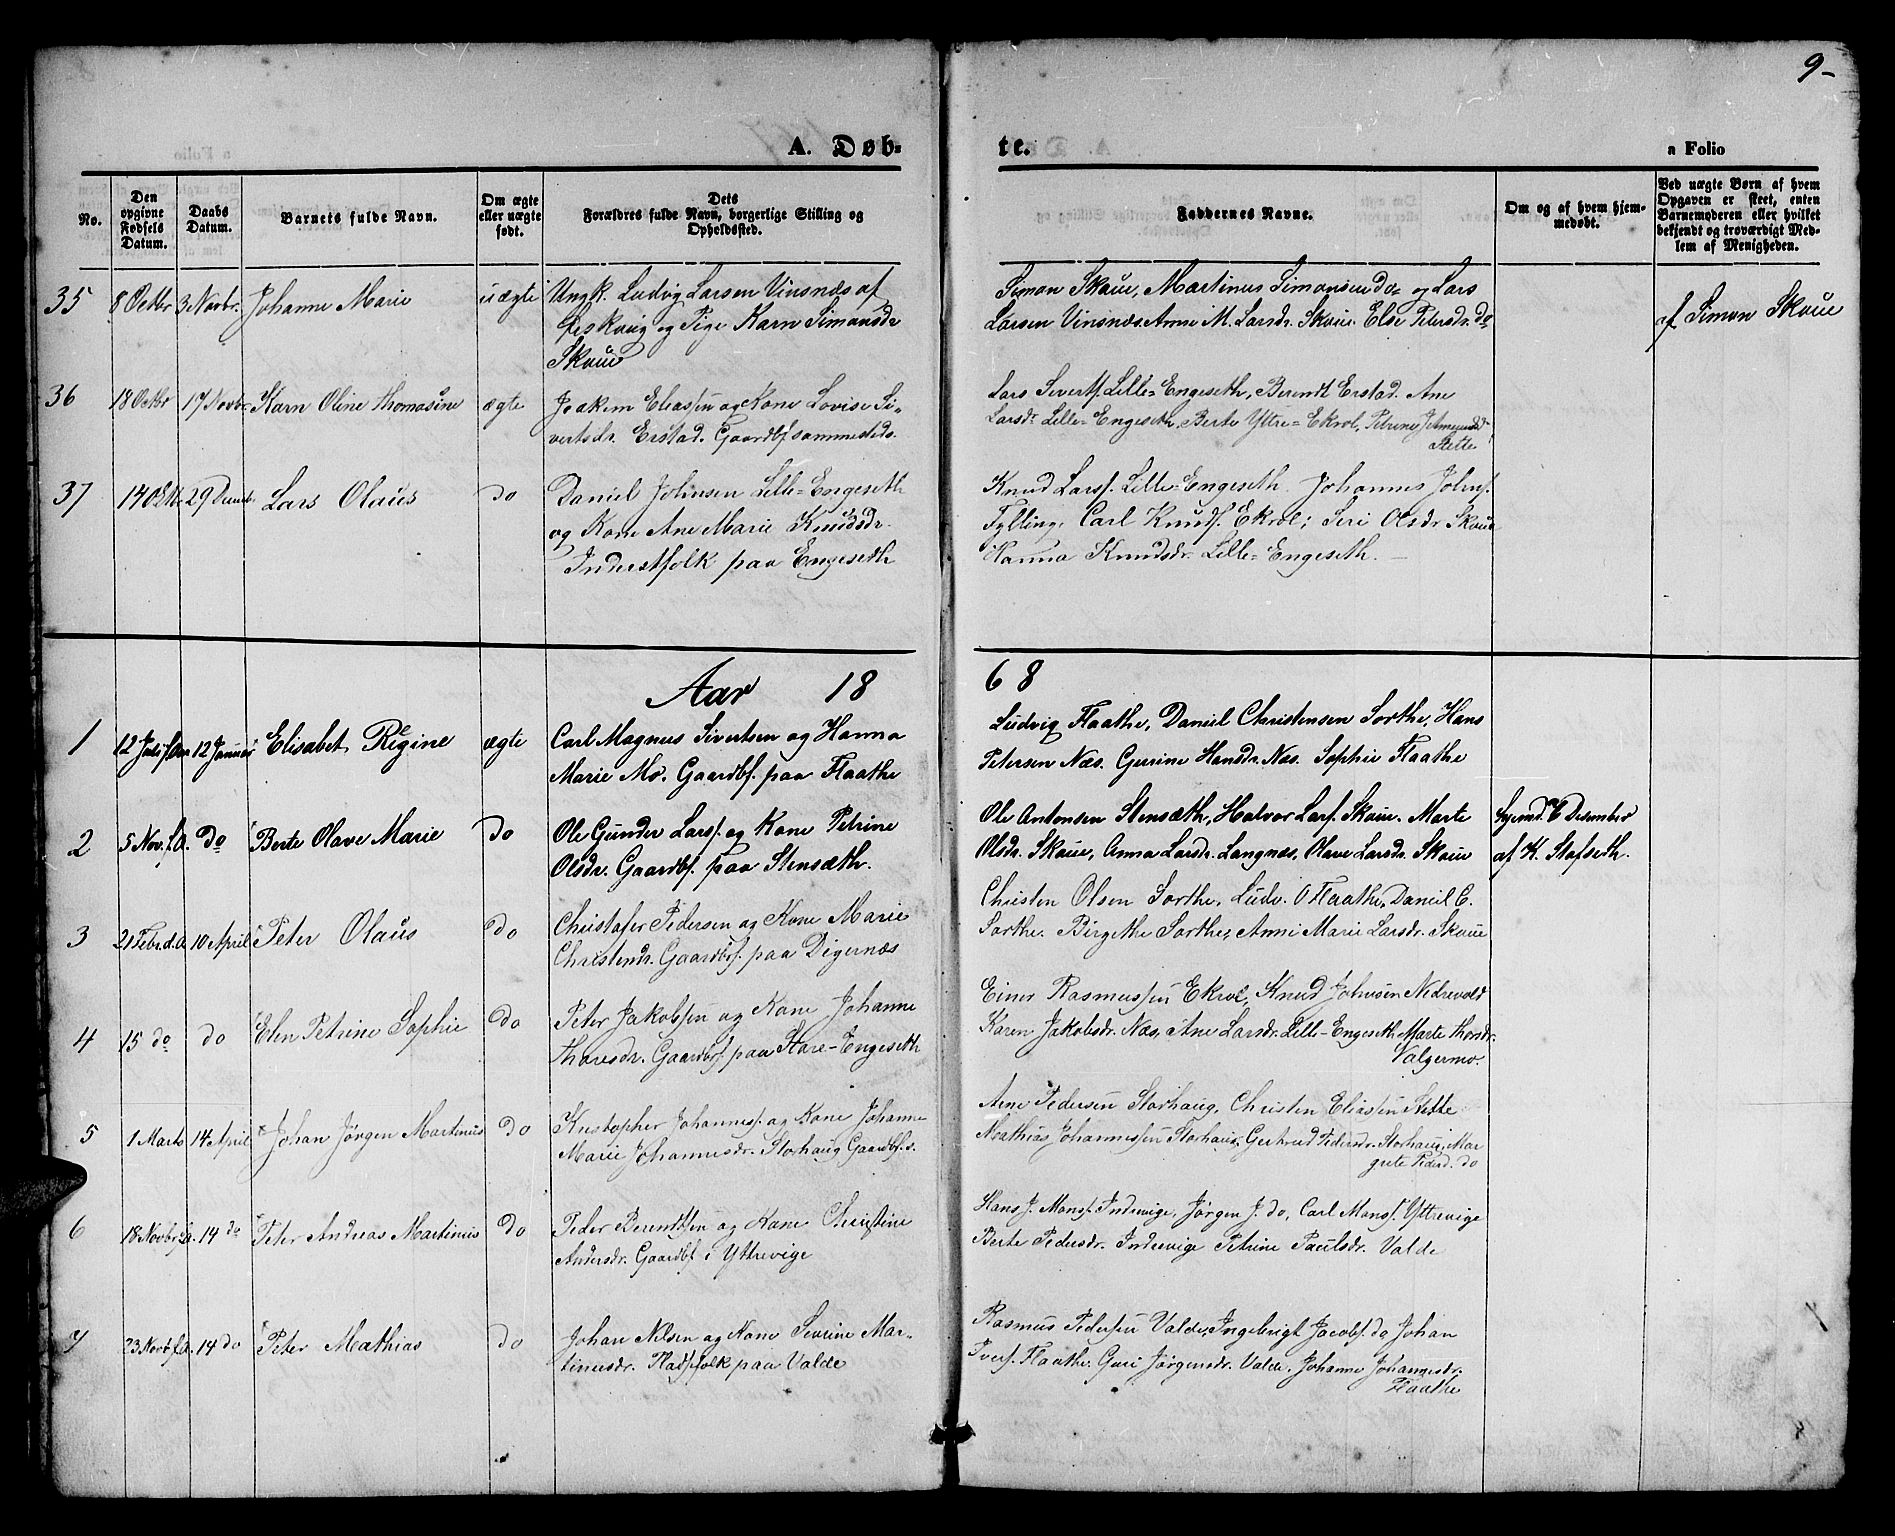 9-
A. Døb-
te.
a Folio
No.
Den opgivne Fødsels Datum.
Daabs Datum.
Barnets fulde Navn.
Om ægte eller uægte født.
Dets Forældres fulde Navn, borgerlige Stilling og Opholdssted.
Faddernes Navne.
Om og af hvem hjemmedøbt.
Ved uægte Børn af hvem Opgaven er skeet, enten Barnemoderen eller hvilket bekjendt og troværdigt Medlem af Menigheden.
35 8 Octbr 3 Novbr. Johanne Marie uægte Ungk. Ludvig Larsen Vinsnæs af
og Pige Karn Simonsdr
Skoue
Simon Skoue, Martinus Simonsen do og Lars
Larsen Vinsnæs Anne M. Larsdr. Skoue. Else Petersdr. do
af Simon Skoue
36 18 Octbr 17 Novbr Karn Oline Thomasine ægte Joakim Eliassen og Kone Lovise Si-
vertsdr. Erstad. Gaardbf sammesteds.
Lars Sivertsf. Lille-Engeseth, Berendt Erstad. Ane
Larsdr Lille-Engeseth, Berte Yttre-Ekrol, Petrine
Stette
37 14 Octbr 29 Decmb. Lars Olaus do Daniel Johnsen Lille-Engeseth
og Kone Ane Marie Knudsdr.
Inderstfolk paa Engeseth
Knud Larsf. Lille-Engeseth Johannes Johnsf.
Fylling, Carl Knudsf. Ekrol; Seri Olsdr. Skoue
Hanna Knudsdr. Lille-Engeseth.
Aar 18
68
1 12 Juli f.Aar 12 Januar Elisabet Regine ægte Carl Magnus Sivertsen og Hanna
Marie Mo. Gaardbf. paa Flaathe
Ludvig Flaathe, Daniel Christensen Sorthe, Hans
Petersen Næs. Gurine Hansdr. Næs. Sophie Flaathe
2 5 Nov. f.A. do Berte Olave Marie do Ole Gunder Larsf. og Kone Petrine
Olsdr. Gaardbf. paa Stensæth.
Ole Antonsen Stensæth, Halvor Larsf. Skoue. Marte
Olsdr. Skoue, Anna Larsdr. Langnæs, Olave Larsdr. Skoue
Hjemd. Desember
af K. Stafseth.
3 21 Febr. d.A. 10 April Peter Olaus do Christofer Pedersen og Kone Marie
Christendr. Gaardbrf. paa Digernæs
Christen Olsen Sorthe, Ludv. O Flaathe, Daniel C.
Sorthe. Birgethe Sorthe, Anne Marie Larsdr. Skoue
4 15 do do Elen Petrine Sophie do Peter Jakobsen og Kone Johanne
Thoresdr. Gaardbrf. paa Store-Engeseth
Einer Rasmussen Ekrol, Knud Johnsen Nedrevold
Karen Jakobsdr. Næs, Ane Larsdr. Lille-Engeseth. Marte Thordr.
Valgermo.
5 1 Marts 14 April Johan Jörgen Martinus do Kristopher Johannesf. og Kone Johanne
Marie Johannesdr. Storhaug Gaardbf. s.
Arne Pedersen Storhaug, Christen Eliassen Stette
Mathias Johannessen Storhaug, Gertrud Pedersdr. Storhaug, Mar
grete Pedersd. do
6 18 Novbr f.A. 14 do Peter Andreas Martinus do Peder Berendtsen og Kone Christine
Andersdr. Gaardbf. i Yttrevige
Hans J. Monsf. Indrevige, Jörgen J. do, Carl Monsf. Yttrevige
Berte Pedersdr. Indrevige Petrine Paulsdr. Valde
7 23 Novbr f.A. 14 do Peter Mathias do Johan Nilsen og Kone Severine Mar-
tinusdr. Pladsfolk paa Valde
Rasmus Pedersen Valde, Ingebrigt Jacobsf. do Johan
Iversf. Flaathe. Guri Jörgensdr. Valde, Johanne Johannesdr.
Flaathe